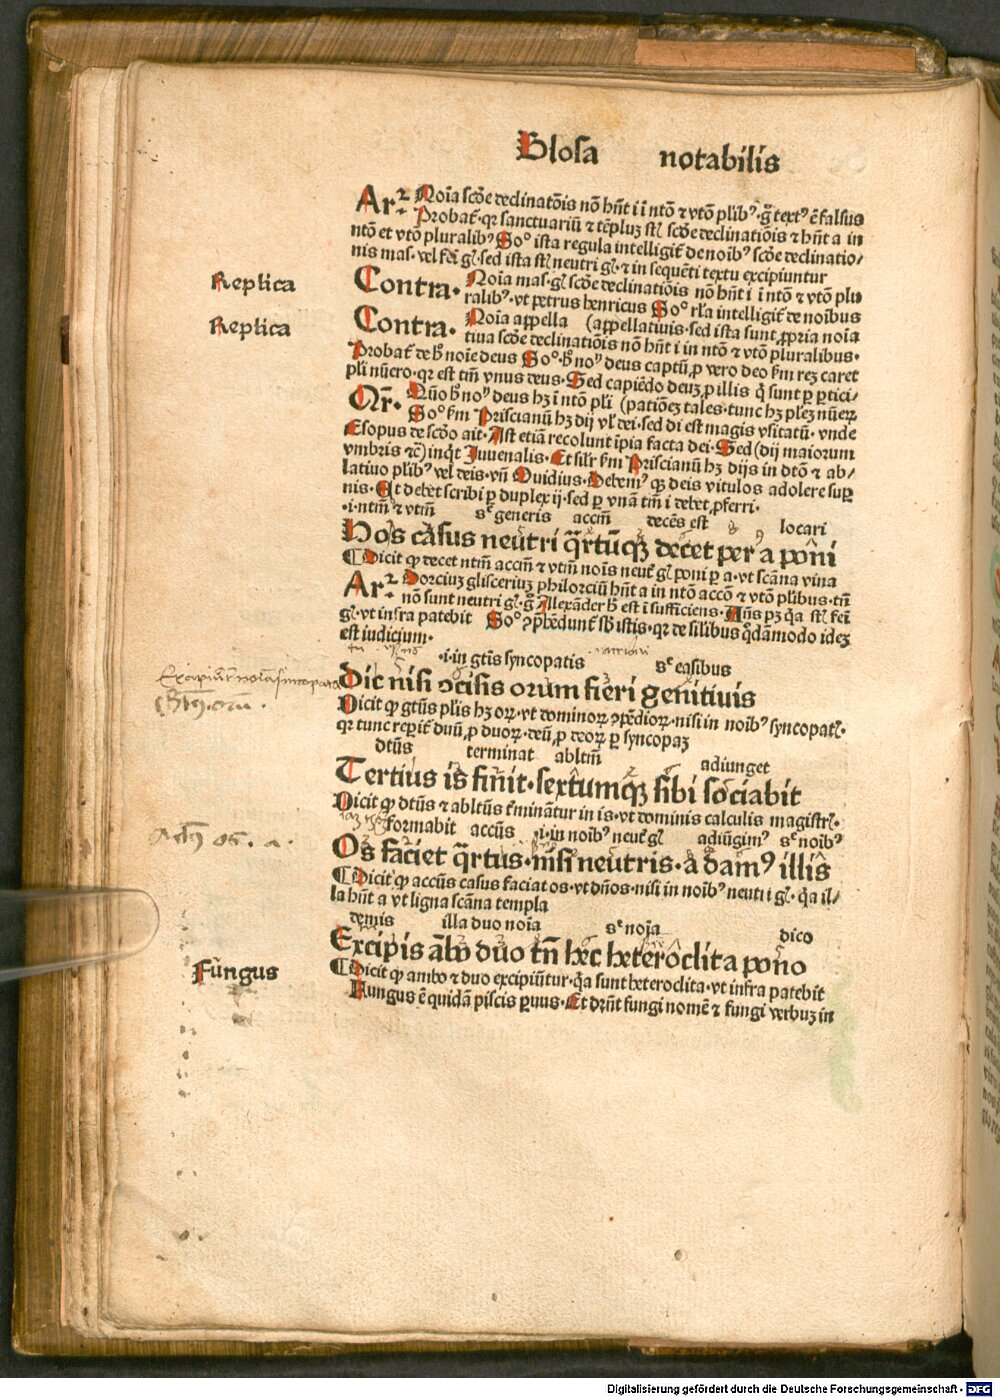 Glosa notabilis
Arͬ. Noīa scḋe declinatōis nō hn̄t i ī ntō ⁊ vtō plībꝰ. g̊ textꝰ ē falsus
Probat᷑. qꝛ sanctuariū ⁊ tēpluꝫ st̄ scḋe declinatiōis ⁊ hn̄t a in
ntō et vtō pluralibꝰ So° ista regula intelligit᷑ de noībꝰ scḋe declinatio/
nis mas. vel fēi gl̄. sed ista st̄ neutri gl̄. ⁊ in sequēti textu excipiuntur
Replica
Contra. Noīa mas. gl̄ scḋe declinatiōis nō hn̄t i ī ntō ⁊ vtō plu
ralibꝰ. vt petrus henricus So° rl̄a intelligit᷑ de noībus
Replica
Contra. Noīa appella (appellatiuis. sed ista sunt ꝓpria noīa
tiua scḋe declinatiōis nō hn̄t i in ntō ⁊ vtō pluralibus.
Probat᷑ de h̄ noīe deus So°. h̄ noꝰ deus captū ꝓ vero deo k̄m reꝫ caret
pli nūero. qꝛ est tm̄ vnus deus. Sed capiēdo deuꝫ ꝓ illis q̄ sunt ꝑ ꝑtici/
Qr̄. Quō h̄ noꝰ deus hꝫ i ntō pli (patiōeꝫ tales. tunc hꝫ pleꝫ nūeꝝ
So° k̄m Priscianū hꝫ dij vl̄ dei. sed di est magis vsitatū. vnde
Esopus de scḋo ait. Ast etiā recolunt īpia facta dei. Sed (dij maiorum
vmbris ⁊c̄) inq̇t Iuuenalis. Et sil̄r k̄m Priscianū hꝫ dijs in dtō ⁊ ab/
latiuo plībꝰ vel deis. vn̄ Ouidius. Debemꝰ qꝫ deis vitulos adolere suꝑ
nis. Et debet scribi ꝑ duplex ij. sed ꝑ vnā tm̄ i debet ꝓferri.
.i. ntm̄ ⁊ vtm̄ sᵉ generis accm̄ decēs est locari
Hos casus neutri q̄rtūqꝫ decet per a pōni
¶ Dicit ꝙ decet ntm̄ accm̄ ⁊ vtm̄ noīs neut᷑ gl̄ poni ꝑ a. vt scāna vina
Arͬ. Dorciuꝫ glisceriuꝫ philorciū hn̄t a in ntō accō ⁊ vtō plībus. tn̄
nō sunt neutri gl̄. g̊ Alexāder h̄ est i sufficiens. Añs pꝫ q̇a st̄ fēi
gl̄. vt infra patebit So° ꝯp̄hēdunt᷑ sb̄ istis. qꝛ de silibus q̇dāmodo ideꝫ
est iudicium.
.i. in gtīs syncopatis sᵉ casibus
Dic nisi ꝯcisis orum fieri genitiuis
Dicit ꝙ gtūs plīs hꝫ oꝝ. vt dominoꝝ ꝯpēdioꝝ. nisi in noībꝰ syncopatl̄.
qꝛ tunc reperit᷑ duū ꝓ duoꝝ. deū ꝓ deoꝝ ꝑ syncopaꝫ
dtūs terminat abltm̄ adiunget
Tertius is finit. sextumqꝫ sibi sociabit
Dicit ꝙ dtūs ⁊ abltūs t᷑minātur in is. vt dominis calculis magistrl̄.
formabit accūs .i. in noībꝰ neut᷑ gl̄ adiūgimꝰ sᵉ noībꝰ
Os faciet q̄rtus. nisi neutris. a damꝰ illis
¶ Dicit ꝙ accūs casus faciat os. vt dn̄os. nisi in noībꝰ neutri gl̄. q̇a il/
la hn̄t a vt ligna scāna templa
demis illa duo noīa sᵉ noīa dico
Excipis ābo duo tn̄ hec heteroclita pono
¶ Dicit ꝙ ambo ⁊ duo excipiūtur. q̇a sunt heteroclita. vt infra patebit
Fungus
Fungus ē quidā piscis ꝑuus. Et drn̄t fungi nomē ⁊ fungi verbuꝫ in
Digitalisierung gefördert durch die Deutsche Forschungsgemeinschaft - DFG